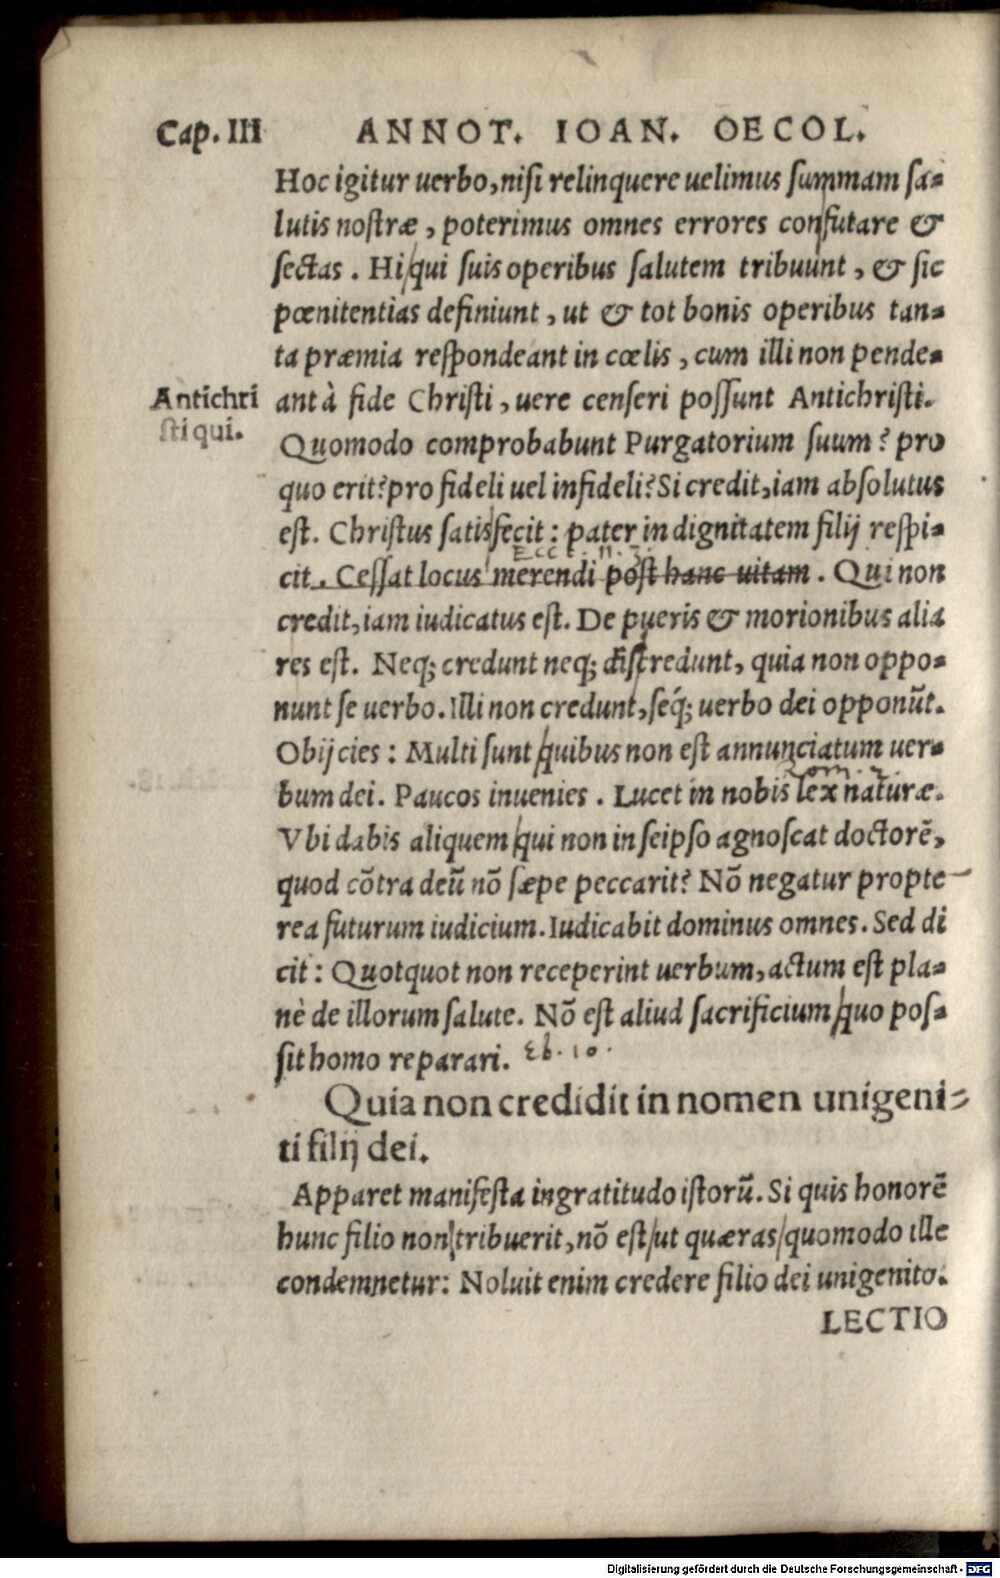 Cap. III ANNOT. IOAN. OECOL.
Hoc igitur uerbo, nisi relinquere uelimus summam sa-
lutis nostræ, poterimus omnes errores confutare &
sectas. Hi qui suis operibus salutem tribuunt, & sic
pœnitentias definiunt, ut & tot bonis operibus tan-
ta præmia respondeant in cœlis, cum illi non pende-
Antichri
sti qui.
ant à fide Christi, uere censeri possunt Antichristi.
Quomodo comprobabunt Purgatorium suum? pro
quo erit? pro fideli uel infideli? Si credit, iam absolutus
est. Christus satisfecit: pater in dignitatem filij respi-
Eccl. 11. 3.
cit. Cessat locus merendi post hanc uitam. Qui non
credit, iam iudicatus est. De pueris & morionibus alia
res est. Neq; credunt neq; discredunt, quia non oppo-
nunt se uerbo. Illi non credunt, seq́; uerbo dei opponūt.
Obijcies: Multi sunt quibus non est annunciatum uer-
Rom. 2.
bum dei. Paucos inuenies. Lucet in nobis lex naturæ.
Vbi dabis aliquem qui non in seipso agnoscat doctorē,
quod cōtra deū nō sæpe peccarit? Nō negatur propte-
rea futurum iudicium. Iudicabit dominus omnes. Sed di
cit: Quotquot non receperint uerbum, actum est pla-
nè de illorum salute. Nō est aliud sacrificium quo pos-
sit homo reparari. Eb. 10.
Quia non credidit in nomen unigeni-
ti filij dei.
Apparet manifesta ingratitudo istorū. Si quis honorē
hunc filio non tribuerit, nō est ut quæras quomodo ille
condemnetur: Noluit enim credere filio dei unigenito.
LECTIO
Digitalisierung gefördert durch die Deutsche Forschungsgemeinschaft - DFG